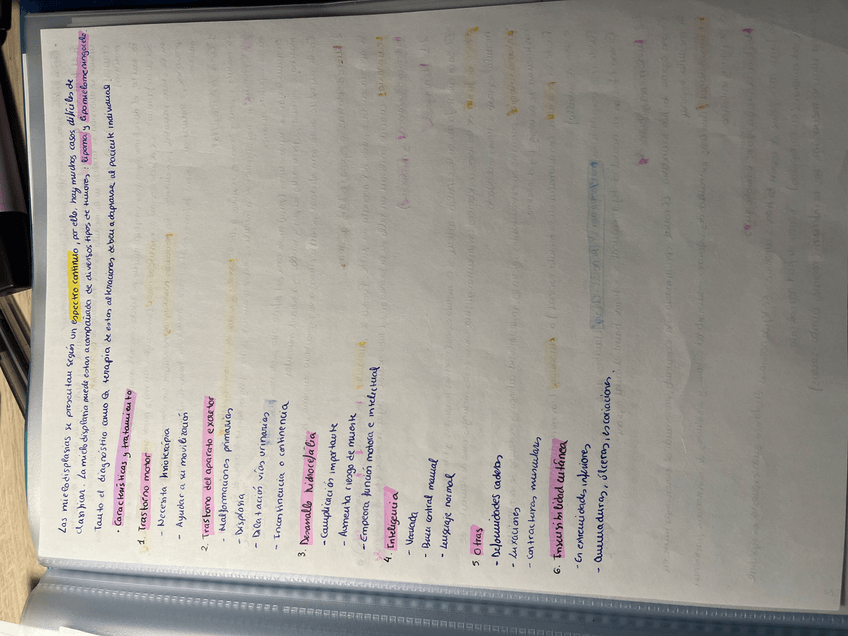 Las mielodisplasias se presentan según un espectro continuo, por ello, hay muchos casos difíciles de
clasificar. La mielodisplasia puede estar acompañada de diversos tipos de tumores: lipoma y lipomielomeningocele.
Tanto el diagnóstico como la terapia de estas alteraciones deben adaptarse al paciente individual.
· Características y tratamiento
1. Trastorno motor
- Necesita fisioterapia
- Ayudar a su movilización
2. Trastorno del aparato excretor
- Malformaciones primarias
- Displasia
- Dilatación vías urinarias
- Incontinencia o continencia
3. Desarrollo hidrocefalia
- Complicación importante
- Aumenta riesgo de muerte
- Empeora función motora e intelectual
4. Inteligencia
- Variada
- Buen control manual
- Lenguaje normal
5. Otras
- Deformidades caderas
- Luxaciones
- Contracturas musculares
6. Insensibilidad cutánea
- En extremidades inferiores
- Quemaduras, úlceras, escoriaciones.